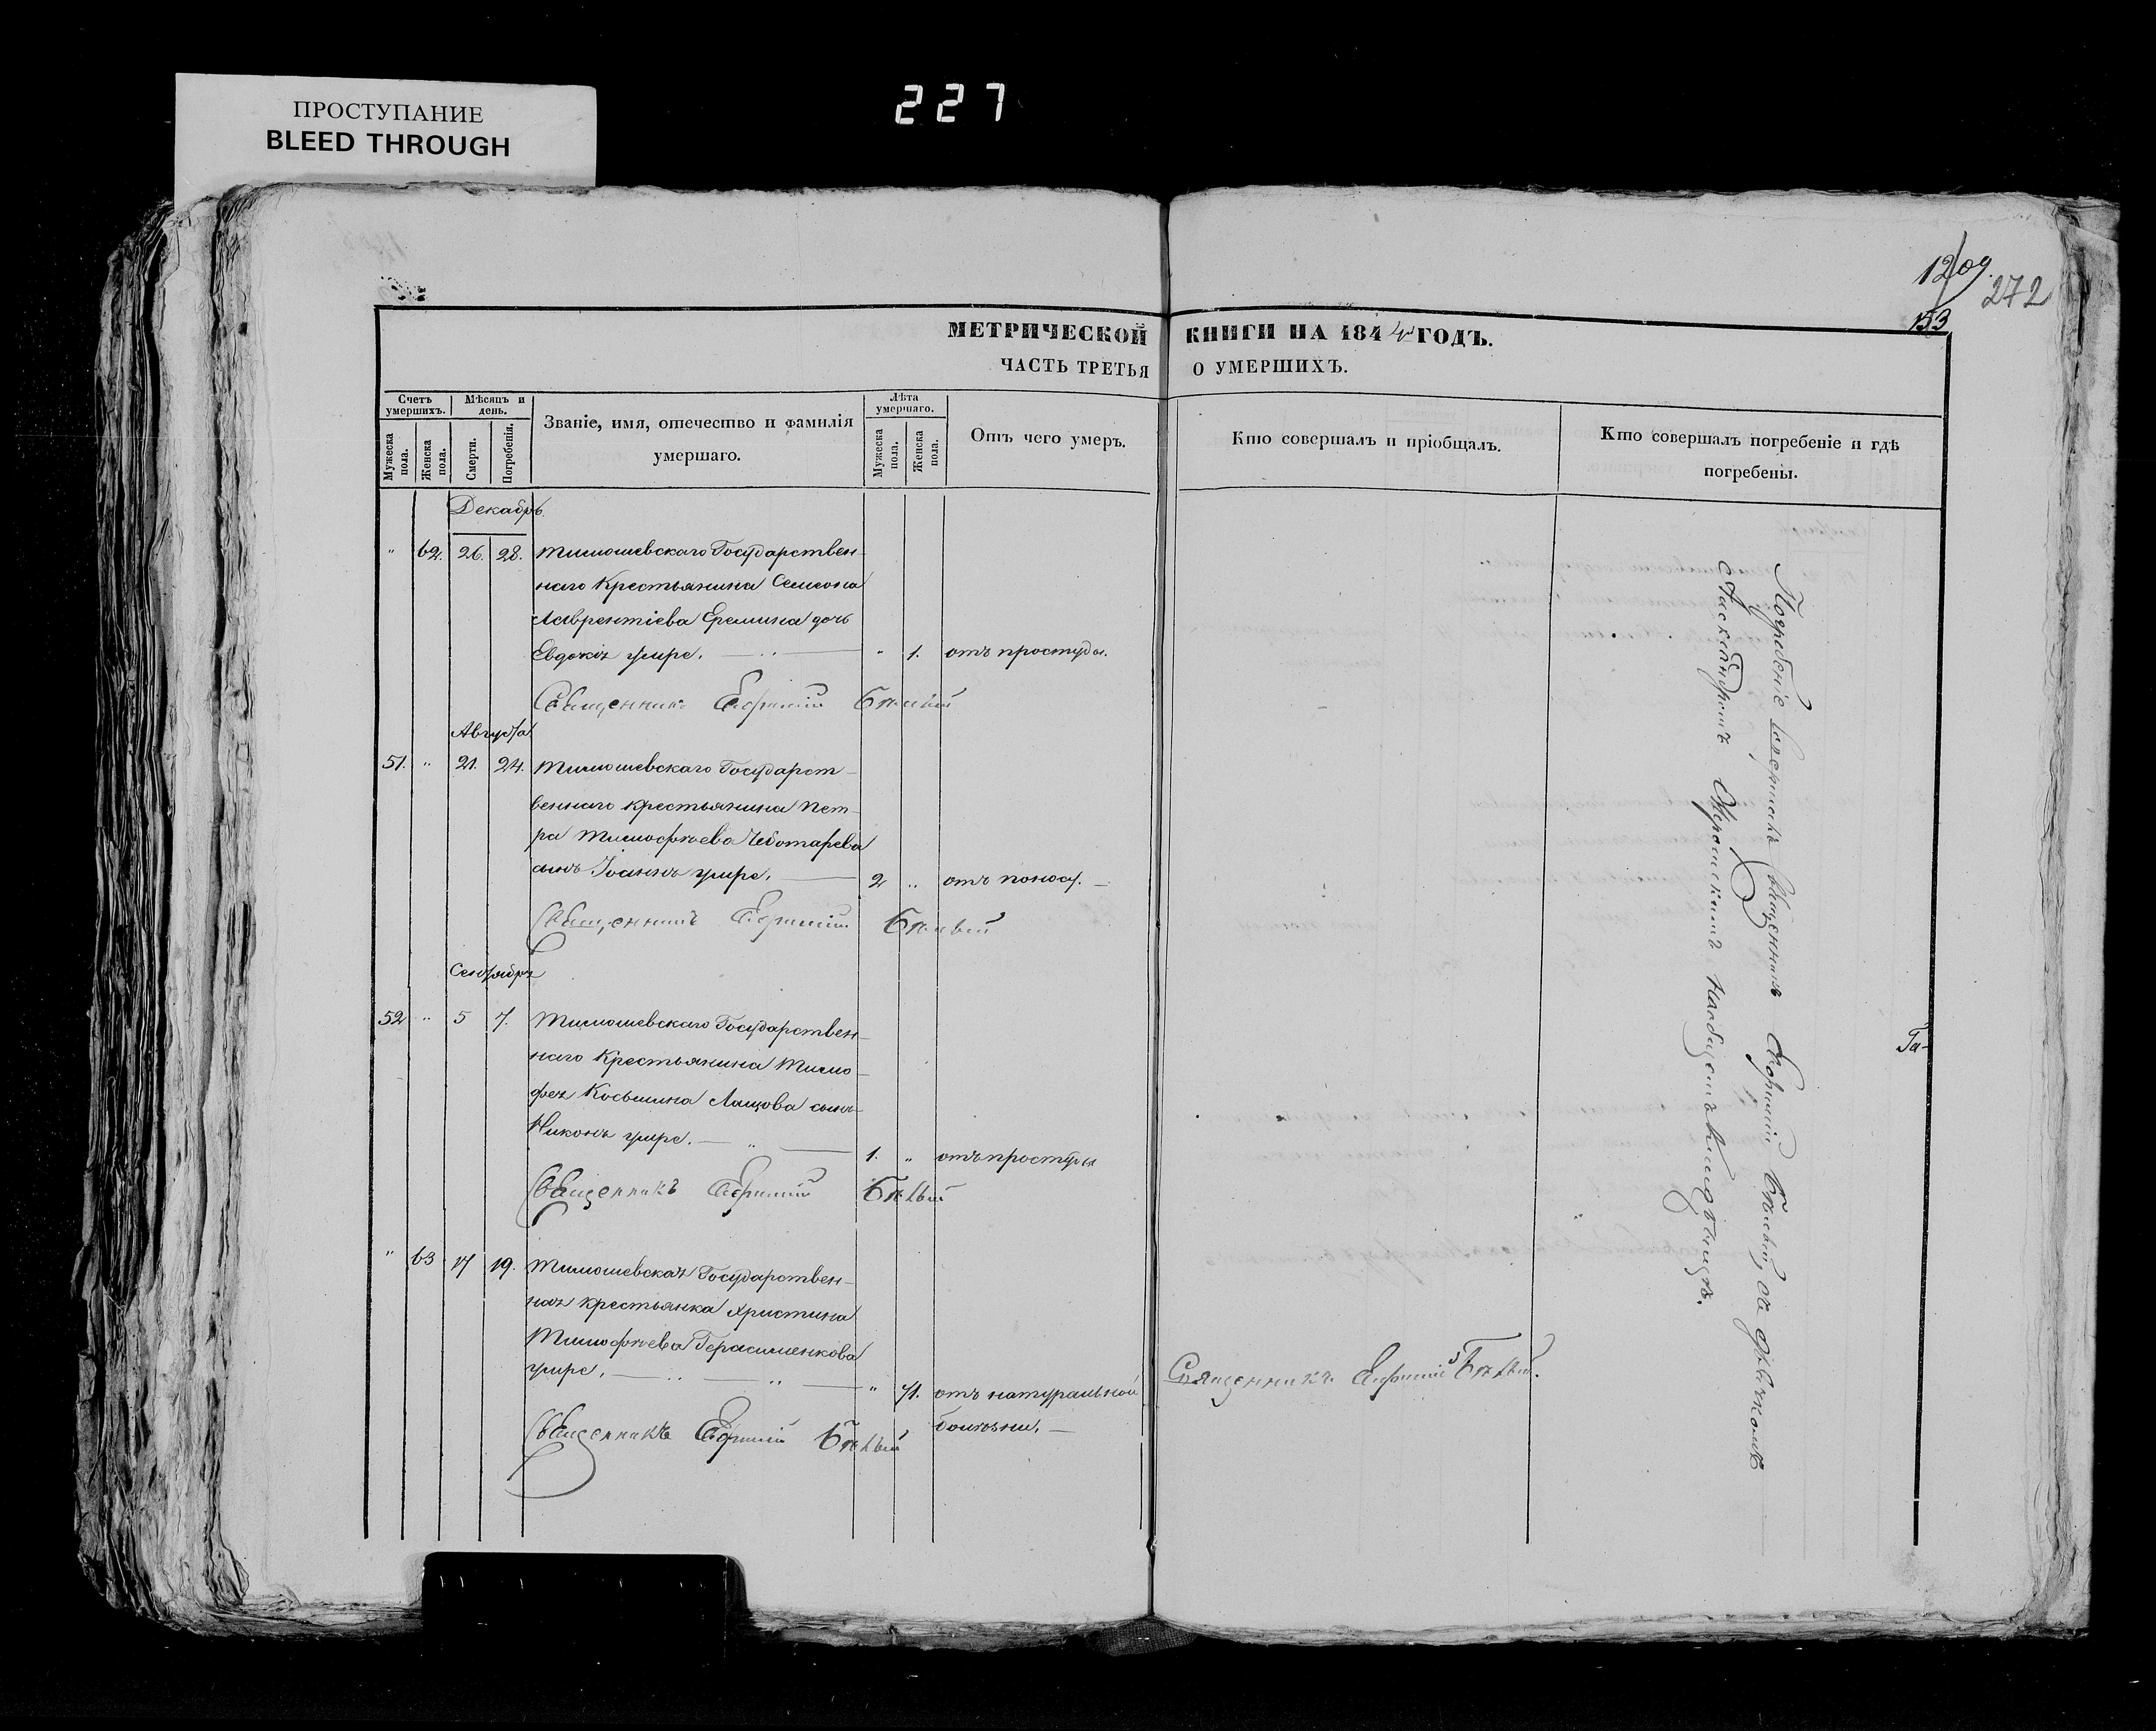 ПРОСТУПАНИЕ
BLEED THROUGH
227
1209.
272
153
МЕТРИЧЕСКОЙ КНИГИ НА 1844 ГОДЪ.
ЧАСТЬ ТРЕТЬЯ О УМЕРШИХЪ.
Счетъ умершихъ.
Мужеска пола.
Женска пола.
Мѣсяцъ и день.
Смерти.
Погребенія.
Званіе, имя, отечество и фамилія умершаго.
Лѣта умершаго.
Мужеска пола.
Женска пола.
Отъ чего умеръ.
Кто совершалъ и пріобщалъ.
Кто совершалъ погребеніе и гдѣ погребены.
Декабрь
" 62. 26. 28. Тимошевскаго Государствен-
наго Крестьянина Семеона
Лаврентіева Еремина дочь
Евдокія умре. " 1. отъ простуды.
Священникъ Евфимій Бѣлый
Августа
51. " 21. 24. Тимошевскаго Государст-
веннаго крестьянина Пет-
ра Тимофѣева Чеботарева
сынъ Іоаннъ умре. 2 " отъ поноса.
Священникъ Евфимій Бѣлый
Сентября
52 " 5 7. Тимошевскаго Государствен-
наго Крестьянина Тимо-
фея Косьмина Лащова сынъ
Никонъ умре. 1. " отъ простуды
Священникъ Евфимій Бѣлый
" 63 17 19. Тимошевская Государствен-
ная крестьянка Христина
Тимофѣева Герасименкова
умре. " 71. отъ натуральной
болѣзни.
Священникъ Евфимій Бѣлый
Священникъ Евфимій Бѣлый.
Погребеніе совершалъ Священникъ Евфимій Бѣлый, съ дьячкомъ
на общемъ кладбищѣ.
Га-